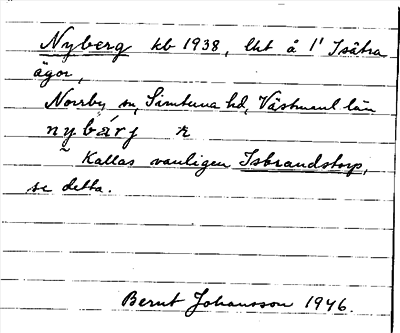 Nyberg kb 1938, lht å 1¹ Isätra
ägor,
Norrby sn, Simtuna hd, Västmanl län
nybárj
Kallas vanligen Isbrandstorp,
se detta.
Bernt Johansson 1946.